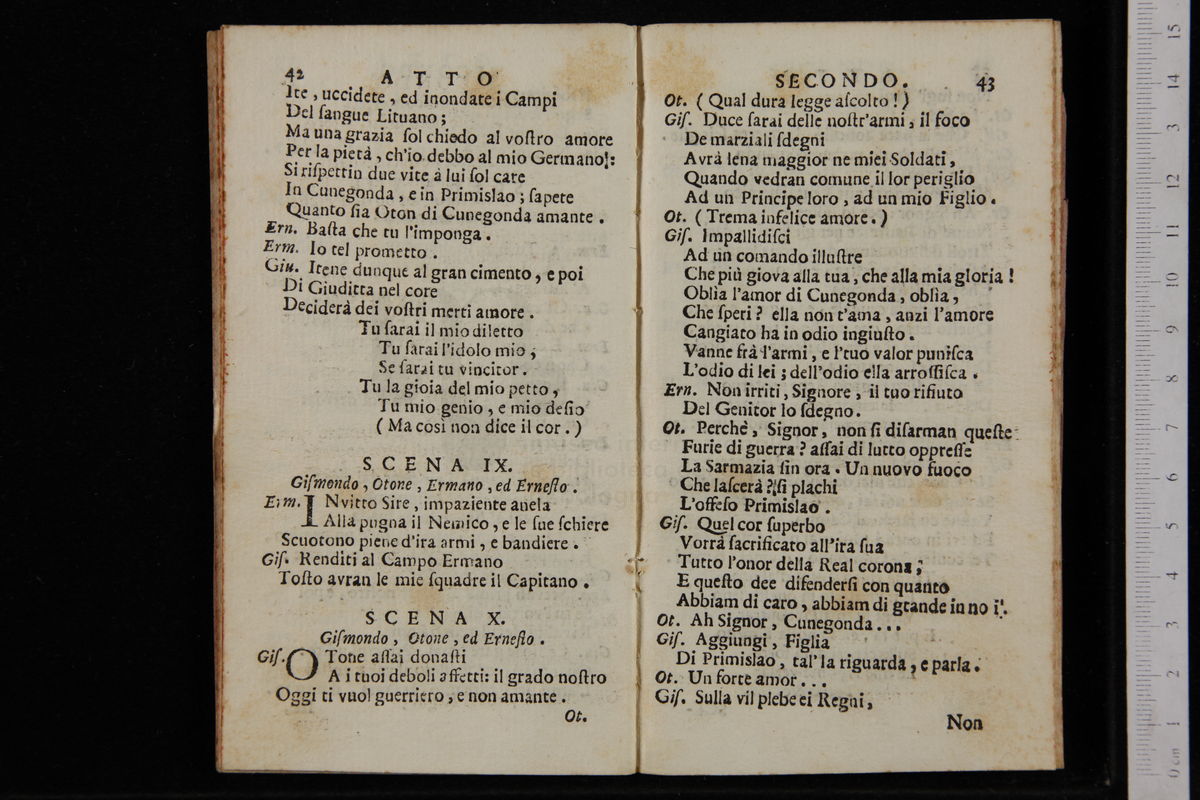 42 ATTO
Ite, uccidete, ed inondate i Campi
Del ſangue Lituano;
Ma una grazia ſol chiedo al voſtro amore
Per la pietà, ch'io debbo al mio Germano!:
Si riſpettin due vite à lui ſol care
In Cunegonda, e in Primislao; ſapete
Quanto ſia Oton di Cunegonda amante.
Ern. Baſta che tu l'imponga.
Erm. Io tel prometto.
Giu. Itene dunque al gran cimento, e poi
Di Giuditta nel core
Deciderà dei voſtri merti amore.
Tu ſarai il mio diletto
Tu ſarai l'idolo mio;
Se ſarai tu vincitor.
Tu la gioia del mio petto,
Tu mio genio, e mio deſio
(Ma così non dice il cor.)
SCENA IX.
Giſmondo, Otone, Ermano, ed Erneſto.
Erm. INvitto Sire, impaziente anela
Alla pugna il Nemico, e le ſue ſchiere
Scuotono piene d'ira armi, e bandiere.
Giſ. Renditi al Campo Ermano
Toſto avran le mie ſquadre il Capitano.
SCENA X.
Giſmondo, Otone, ed Erneſto.
Giſ. OTone aſſai donaſti
A i tuoi deboli affetti: il grado noſtro
Oggi ti vuol guerriero, e non amante.
Ot.
SECONDO. 43
Ot. (Qual dura legge aſcolto!)
Giſ. Duce ſarai delle noſtr'armi, il foco
De marziali ſdegni
Avrà lena maggior ne miei Soldati,
Quando vedran comune il lor periglio
Ad un Principe loro, ad un mio Figlio.
Ot. (Trema infelice amore.)
Giſ. Impallidiſci
Ad un comando illuſtre
Che più giova alla tua, che alla mia gloria!
Oblìa l'amor di Cunegonda, oblìa,
Che ſperi? ella non t'ama, anzi l'amore
Cangiato ha in odio ingiuſto.
Vanne frà l'armi, e l'tuo valor puniſca
L'odio di lei; dell'odio ella arroſſiſca.
Ern. Non irriti, Signore, il tuo rifiuto
Del Genitor lo ſdegno.
Ot. Perchè, Signor, non ſi diſarman queſte
Furie di guerra? aſſai di lutto oppreſſe
La Sarmazia ſin ora. Un nuovo fuoco
Che laſcerà? ſi plachi
L'offeſo Primislao.
Giſ. Quel cor ſuperbo
Vorrà ſacrificato all'ira ſua
Tutto l'onor della Real corona;
E queſto dee difenderſi con quanto
Abbiam di caro, abbiam di grande in no i.
Ot. Ah Signor, Cunegonda...
Giſ. Aggiungi, Figlia
Di Primislao, tal' la riguarda, e parla.
Ot. Un forte amor...
Giſ. Sulla vil plebe ei Regni,
Non